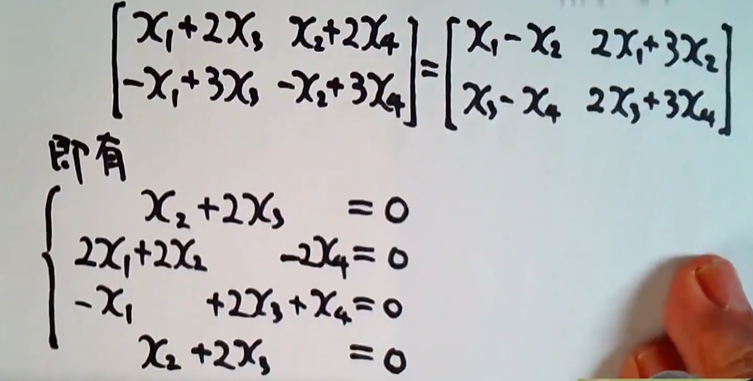 [x₁+2x₃ x₂+2x₄
-x₁+3x₃ -x₂+3x₄] = [x₁-x₂ 2x₁+3x₂
x₃-x₄ 2x₃+3x₄]
即有
{ x₂+2x₃ =0
2x₁+2x₂ -2x₄=0
-x₁ +2x₃+x₄=0
x₂+2x₃ =0